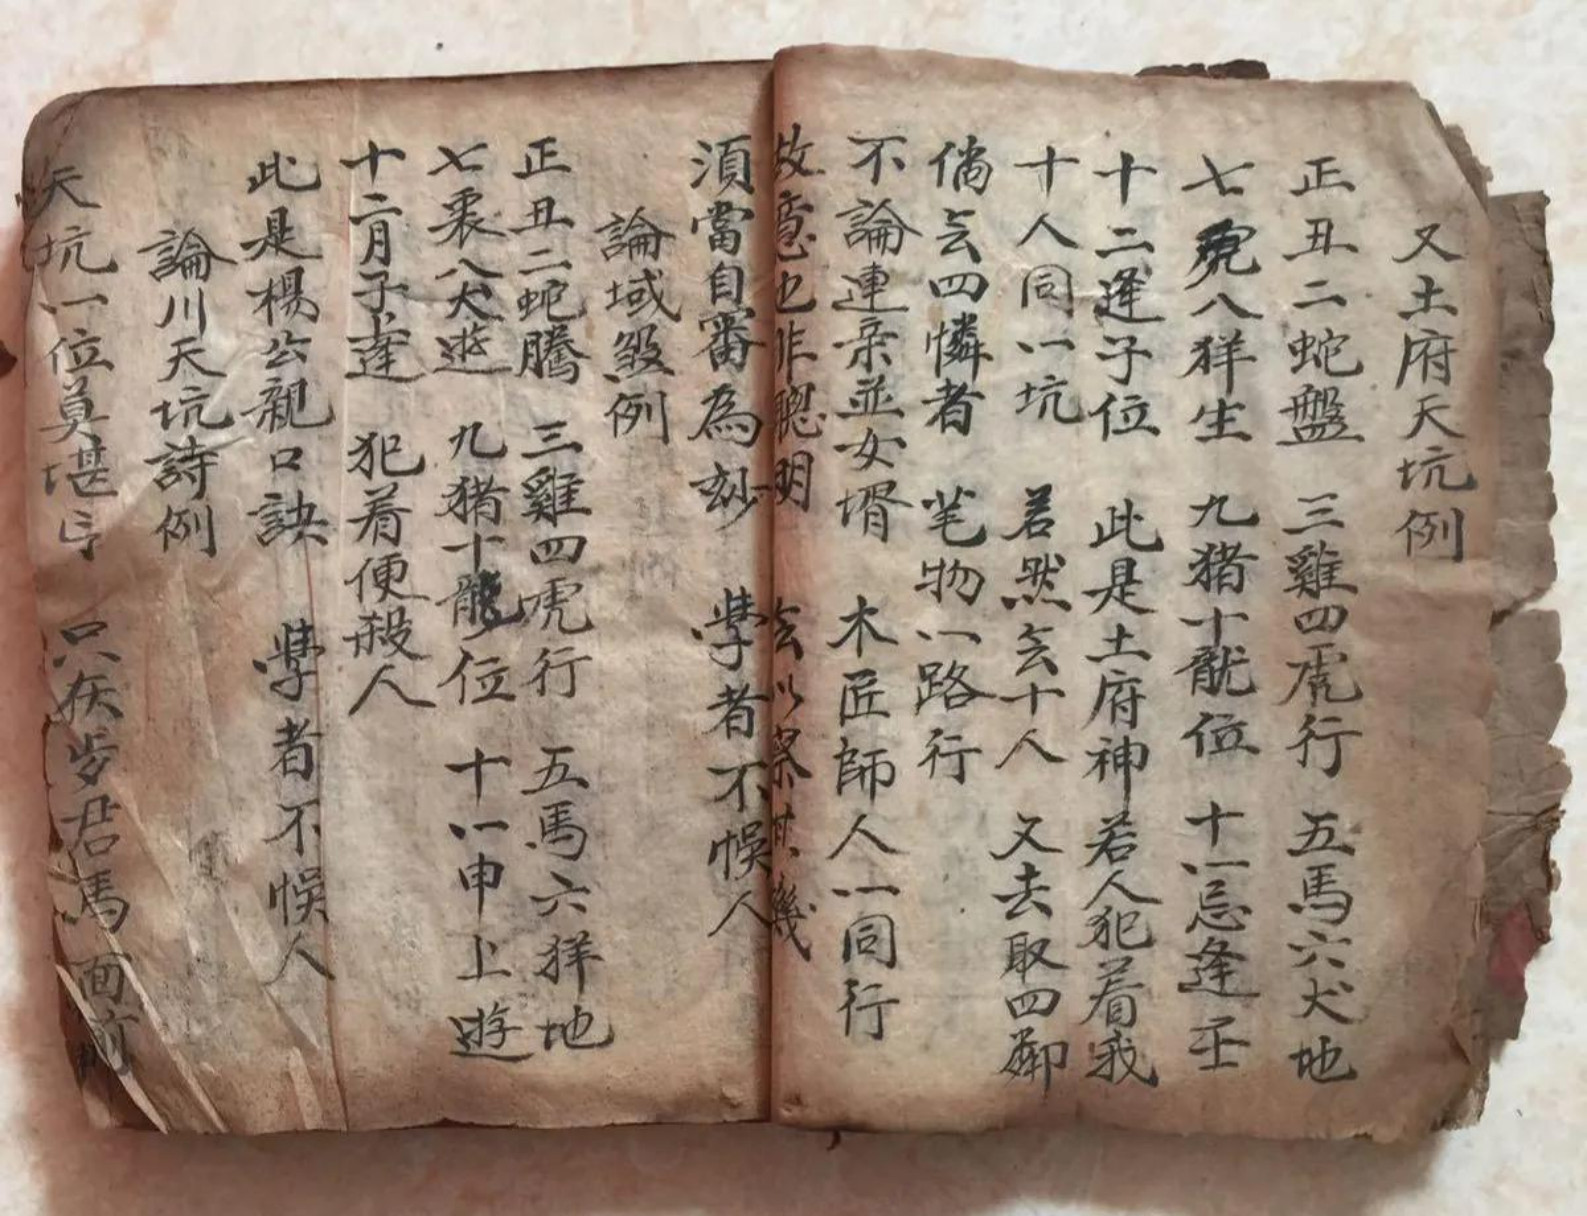 又土府天坑例
正丑二蛇盤 三雞四虎行 五馬六犬地
七兔八羊生 九猪十龍位 十一忌逢壬
十二逢子位 此是土府神 若人犯着我
十人同一坑 若然去十人 又去取四鄰
倘去四憐者 笔物一路行
不論連亲並女壻 木匠師人一同行
故意也非聰明 以察其幾
須當自審為玅 學者不悞人
論域煞例
正丑二蛇騰 三雞四虎行 五馬六羊地
七八犬遊 九猪十龍位 十一申上遊
十二月子逢 犯着便殺人
此是楊公親口訣 學者不悞人
論川天坑詩例
天坑一位莫堪 只在 君馬面前